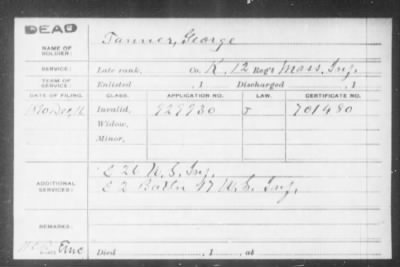 DEAD
NAME OF SOLDIER: Tanner, George
SERVICE: Late rank, Co. K, 12 Reg't Mass. Inf.
TERM OF SERVICE: Enlisted , 1 Discharged , 1
DATE OF FILING. CLASS. APPLICATION NO. LAW. CERTIFICATE NO.
Invalid, 927930 J 701480
Widow,
Minor,
ADDITIONAL SERVICES: C 20 U.S. Inf.
C 2 Battn 17 U.S. Inf.
REMARKS:
Died , 1 , at